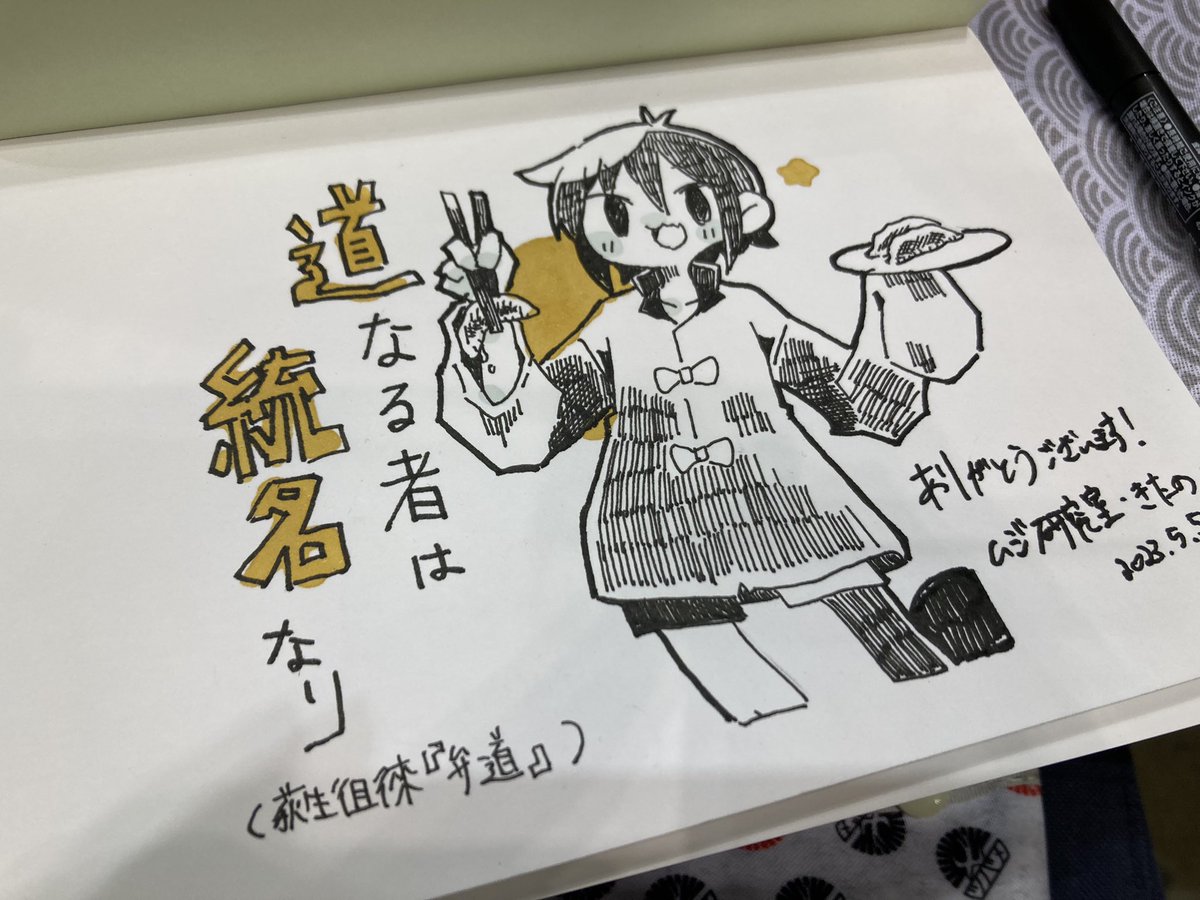 道なる者は
統名なり
（荻生徂徠『弁道』）
ありがとうございます！
ムジ研究室・きたの
2023.5.5